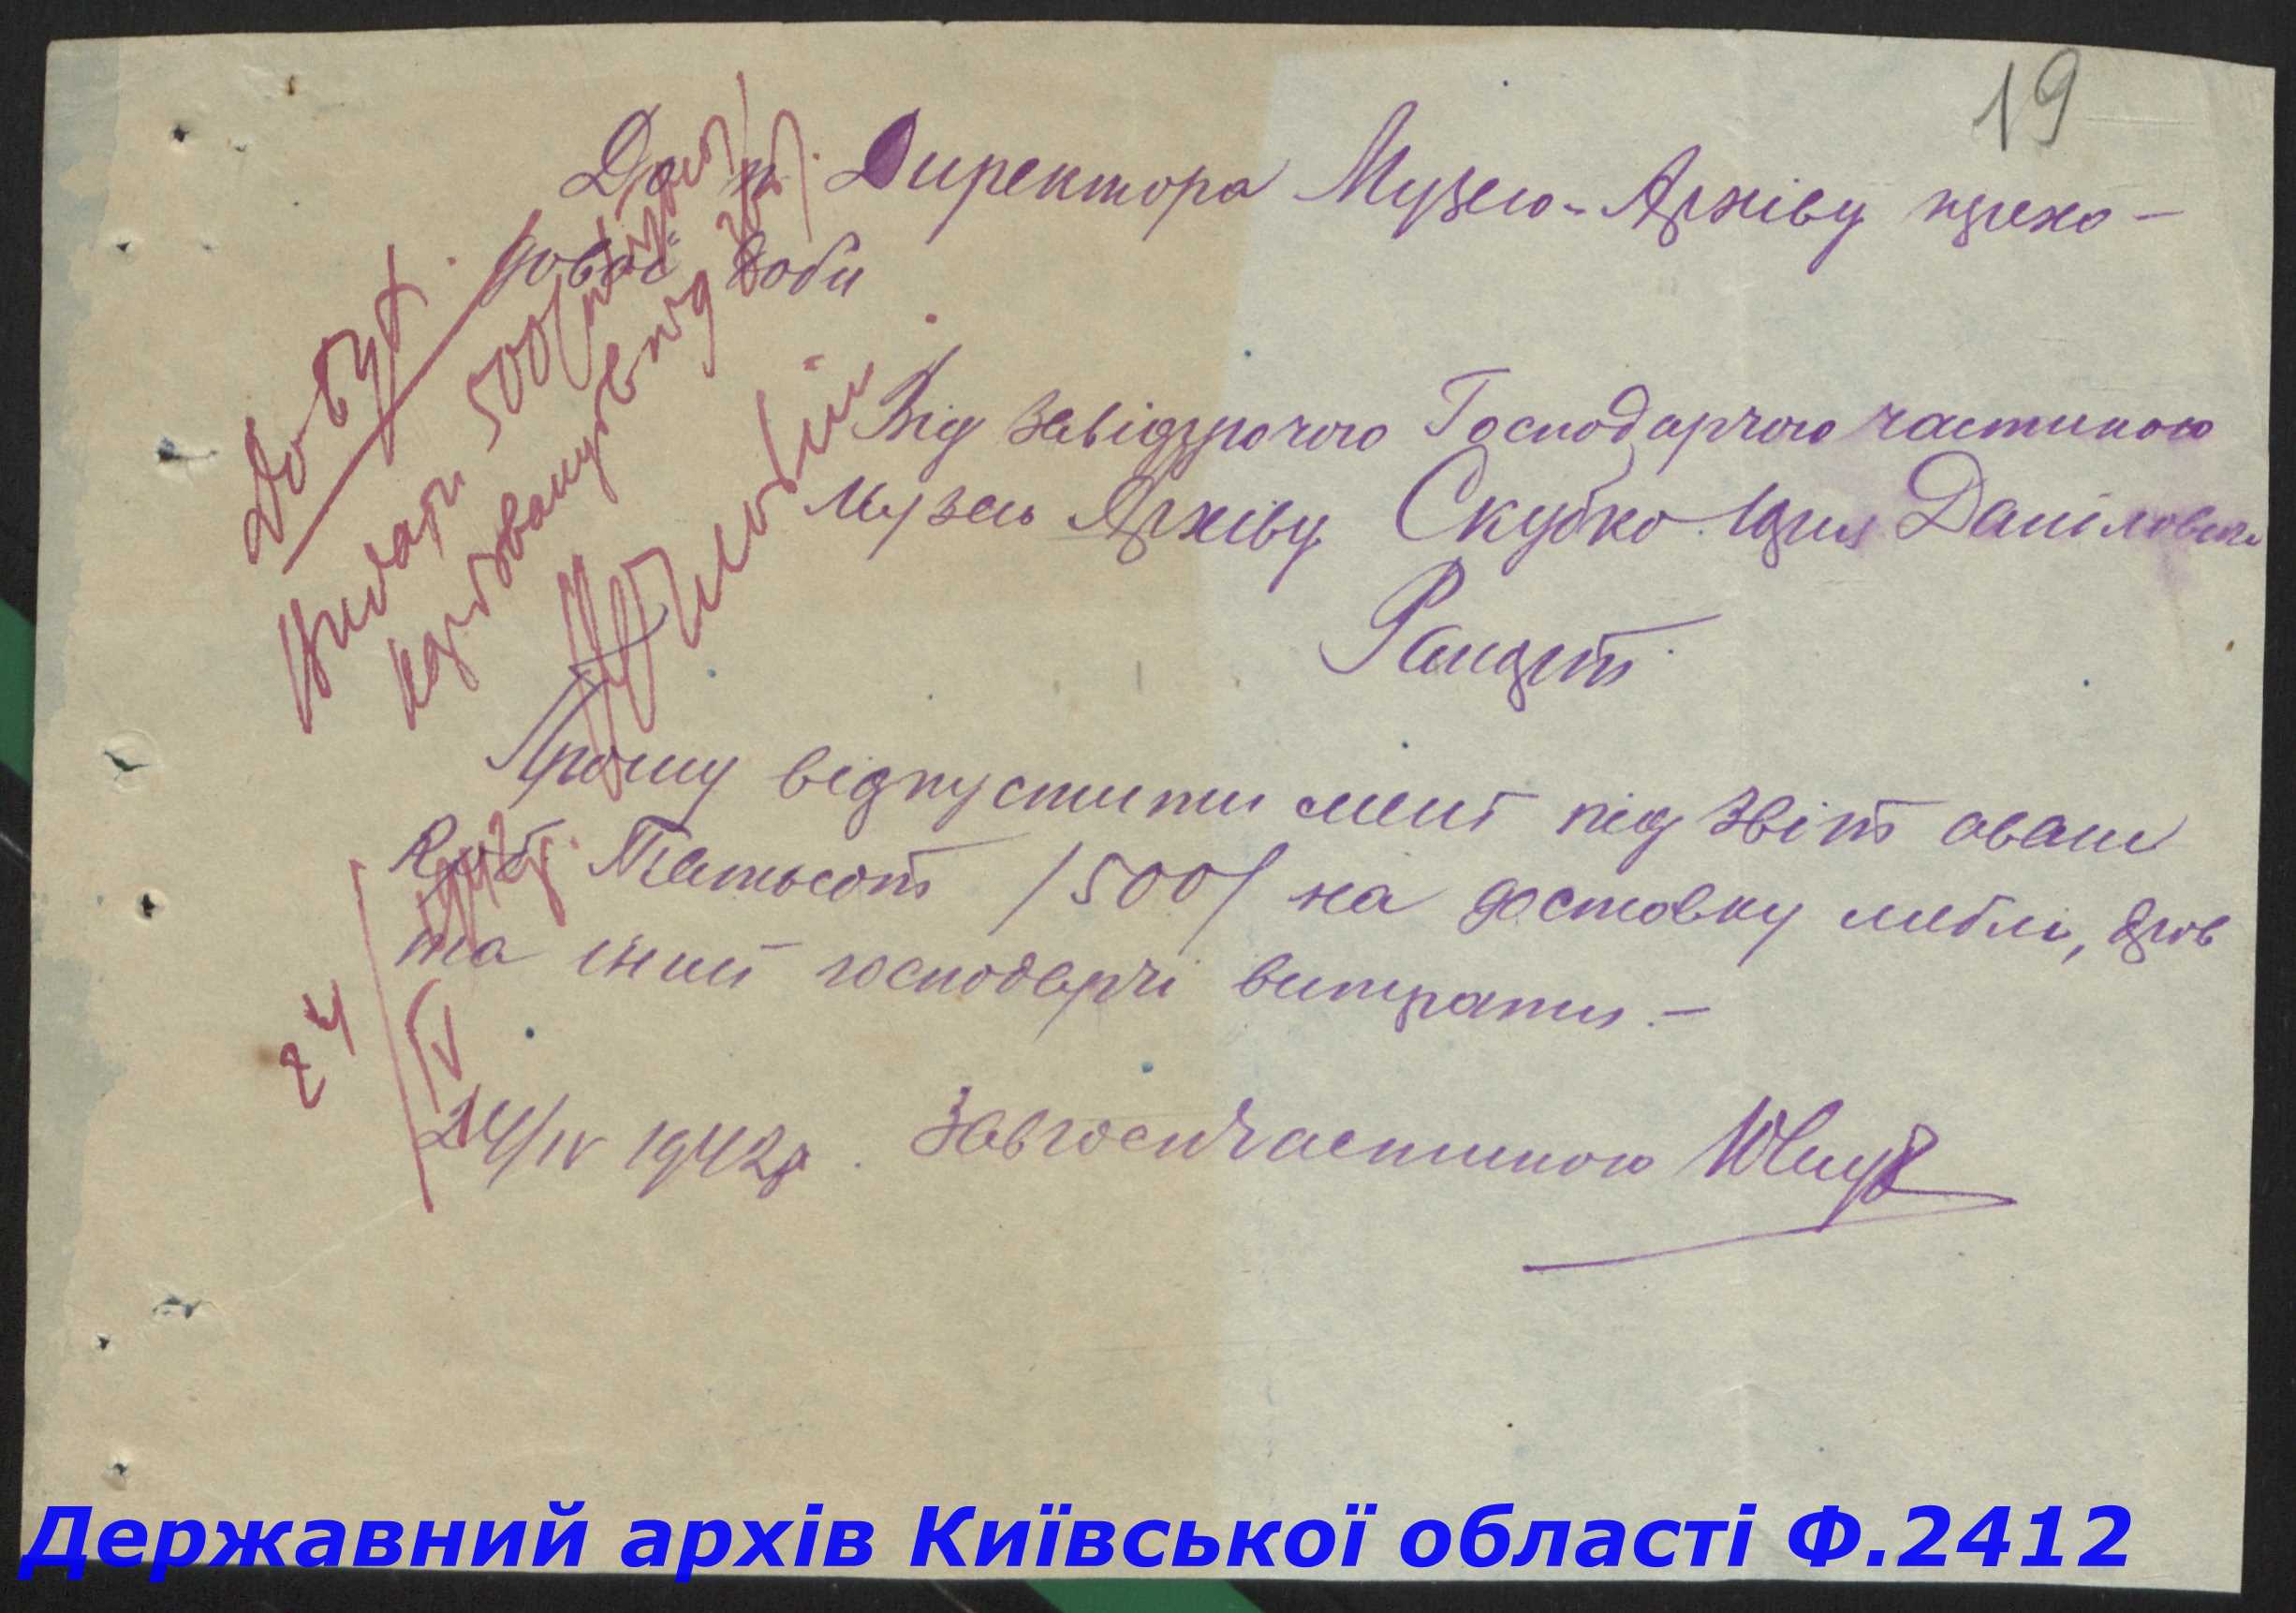 19
До п. Директора Музею-Архіву перехо-
дової доби
Від завідуючого Господарчою частиною
Музею Архіву Скубко Юрия Даніловича
Рапорт
Прошу відпустити мені під звіт аванс
Крб. Пятьсот /500/ на доставку меблі, дров
та інші господарчі витрати. —
24/IV 1942р. Завгоспчастиною
До бух.
Видати 500 /пятьсот/
карбованців під звіт.
24/IV 1942р.
Державний архів Київської області Ф.2412